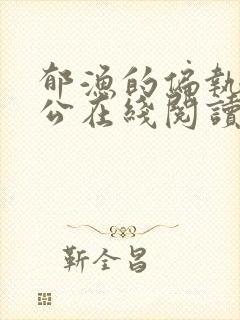 郁漁的偏執
公在綫閱讀
靳全昌